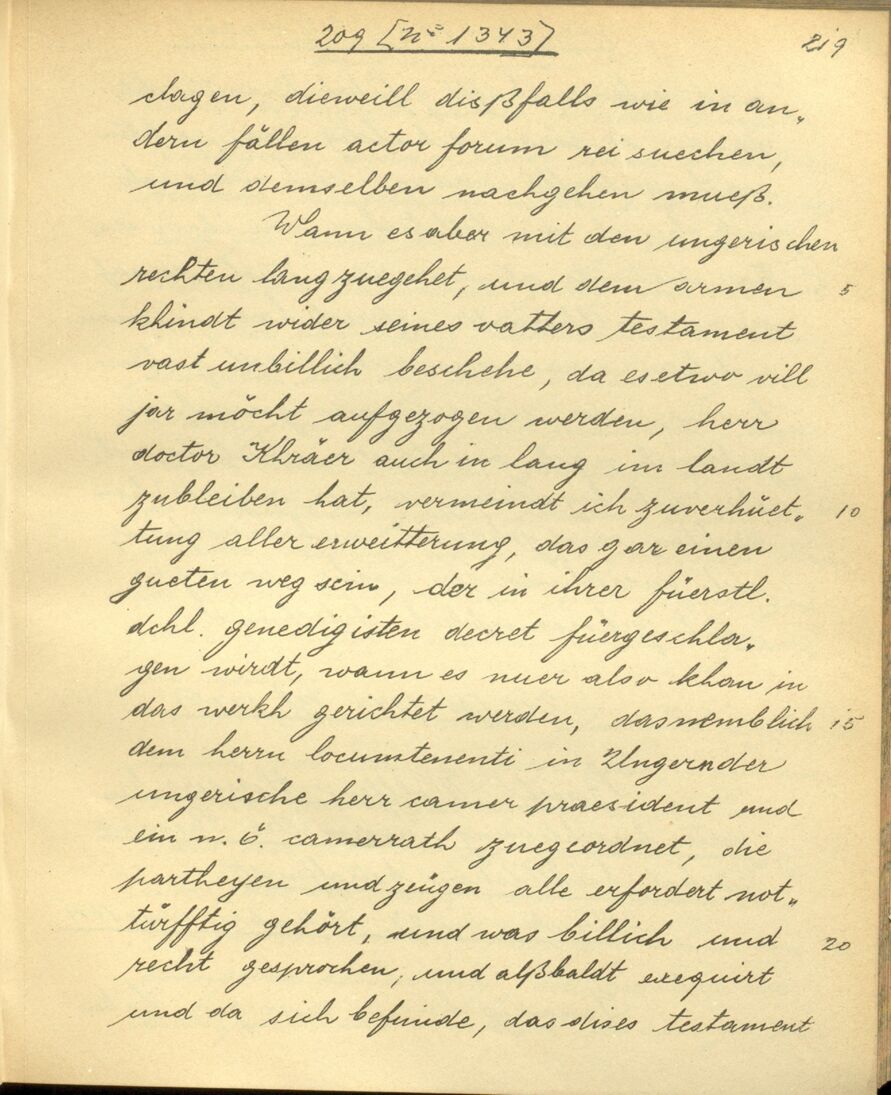 209 [No 1343] 219
clagen, dieweill disßfalls wie in an„
dern fällen actor forum rei suechen,
und demselben nachgehen mueß.
Wann es aber mit den ungerischen
rechten lang zuegehet, und dem armen 5
khindt wider seines vatters testament
vast unbillich beschehe, da es etwo vill
jar möcht aufgezogen werden, herr
doctor Khräer auch in lang im landt
zubleiben hat, vermeindt ich zuverhüet„ 10
tung aller erweitterung, das gar einen
gueten weg sein, der in ihrer füerstl.
dchl. genedigisten decret füergeschla„
gen wirdt, wann es nuer also khan in
das werkh gerichtet werden, das nemblich 15
dem herrn locumtenenti in Ungern der
ungerische herr camer praesident und
ein n. ö. camerrath zuegeordnet, die
partheyen und zeügen alle erfordert not„
türfftig gehört, und was billich und 20
recht gesprochen, und alßbaldt exequirt
und da sich befünde, das dises testament